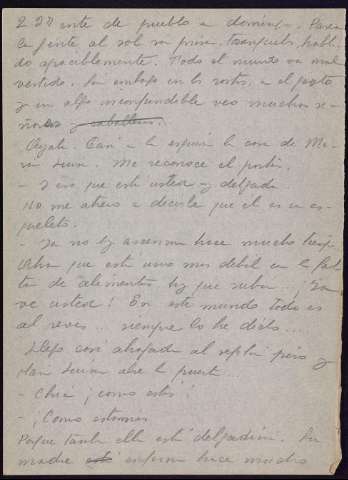 2 2º ente de pueblo en domingo. Parece
la gente, al sol sin prisa, tranquila, hablan
do apaciblemente. Todo el mundo va mal
vestido. Sin embargo en los rostros, en el gesto
y en algo inconfundible veo muchas se-
ñoras y caballeros.
Ayala. Casi a la esquina la casa de Ma-
ría Luisa. Me reconoce el portero.
- Y eso que está usted muy delgada
No me atrevo a decirle que él es un es-
queleto.
- Ya no hay ascensor hace mucho tiempo.
Ahora que está uno más débil con la fal-
ta de alimentos hay que subir... ¡Ya
ve usted! En este mundo todo es
al revés... siempre lo he dicho....
Llego casi ahogada al séptimo piso y
María Luisa abre la puerta.
- Chica ¡como estás!
- ¡Como estamos
Porque también ella está delgadísima. Su
madre está enferma hace mucho